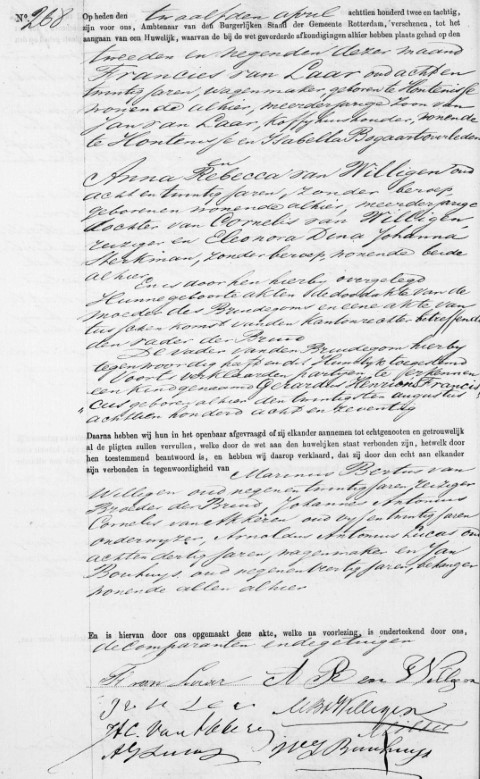 No. 268
Op heden den twaalfden april achttien honderd twee en tachtig,
zijn voor ons, Ambtenaar van den Burgerlijken Stand der Gemeente Rotterdam, verschenen, tot het
aangaan van een Huwelijk, waarvan de bij de wet gevorderde afkondigingen alhier hebben plaats gehad op den
tweeden en negenden dezer maand
Francies van Laar oud acht en
twintig jaren, wagenmaker, geboren te Hontenisse
wonende alhier, meerderjarige zoon van
Jan van Laar, koffyhuishouder, wonende
te Hontenisse en Isabella Bogaart overleden
En
Anna Rebecca van Willigen oud
acht en twintig jaren, zonder beroep
geboren en wonende alhier, meerderjarige
dochter van Cornelis van Willigen
reiziger en Eleonora Dina Johanna
Sterkman, zonder beroep wonende beide
alhier
En is door hen hierby overgelegd
Hunne geboorteakten de doodakte van de
moeder des Bruidegoms en eene akte van
tusschenkomst van den Kantonrechter betreffende
den vader der Bruid
De vader van den Bruidegom hierby
tegenwoordig heeft in dit Huwlyk toegestemd
Voorts verklaarden partyen te erkennen
een kind genaamd Gerardus Henricus Francis
cus geboren alhier den twintigsten augustus
achttien honderd acht en zeventig
Daarna hebben wij hun in het openbaar afgevraagd of zij elkander aannemen tot echtgenooten en getrouwelijk
al de pligten zullen vervullen, welke door de wet aan den huwelijken staat verbonden zijn, hetwelk door
hen toestemmend beantwoord is, en hebben wij daarop verklaard, dat zij door den echt aan elkander
zijn verbonden in tegenwoordigheid van Marinus Bertus van
Willigen oud negen en twintig jaren reiziger
Broeder der Bruid, Johannes Antonius
Cornelis van oud vyf en twintig jaren
onderwyzer, Arnoldus Antonius Lucas oud
acht en dertig jaren, wagenmaker en Jan
Bouhuys, oud negen en veertig jaren, behanger
wonende allen alhier
En is hiervan door ons opgemaakt deze akte, welke na voorlezing, is onderteekend door ons,
de comparanten en de getuigen
Fr van Laar A R van Willigen
M B v Willigen
Bouhuys